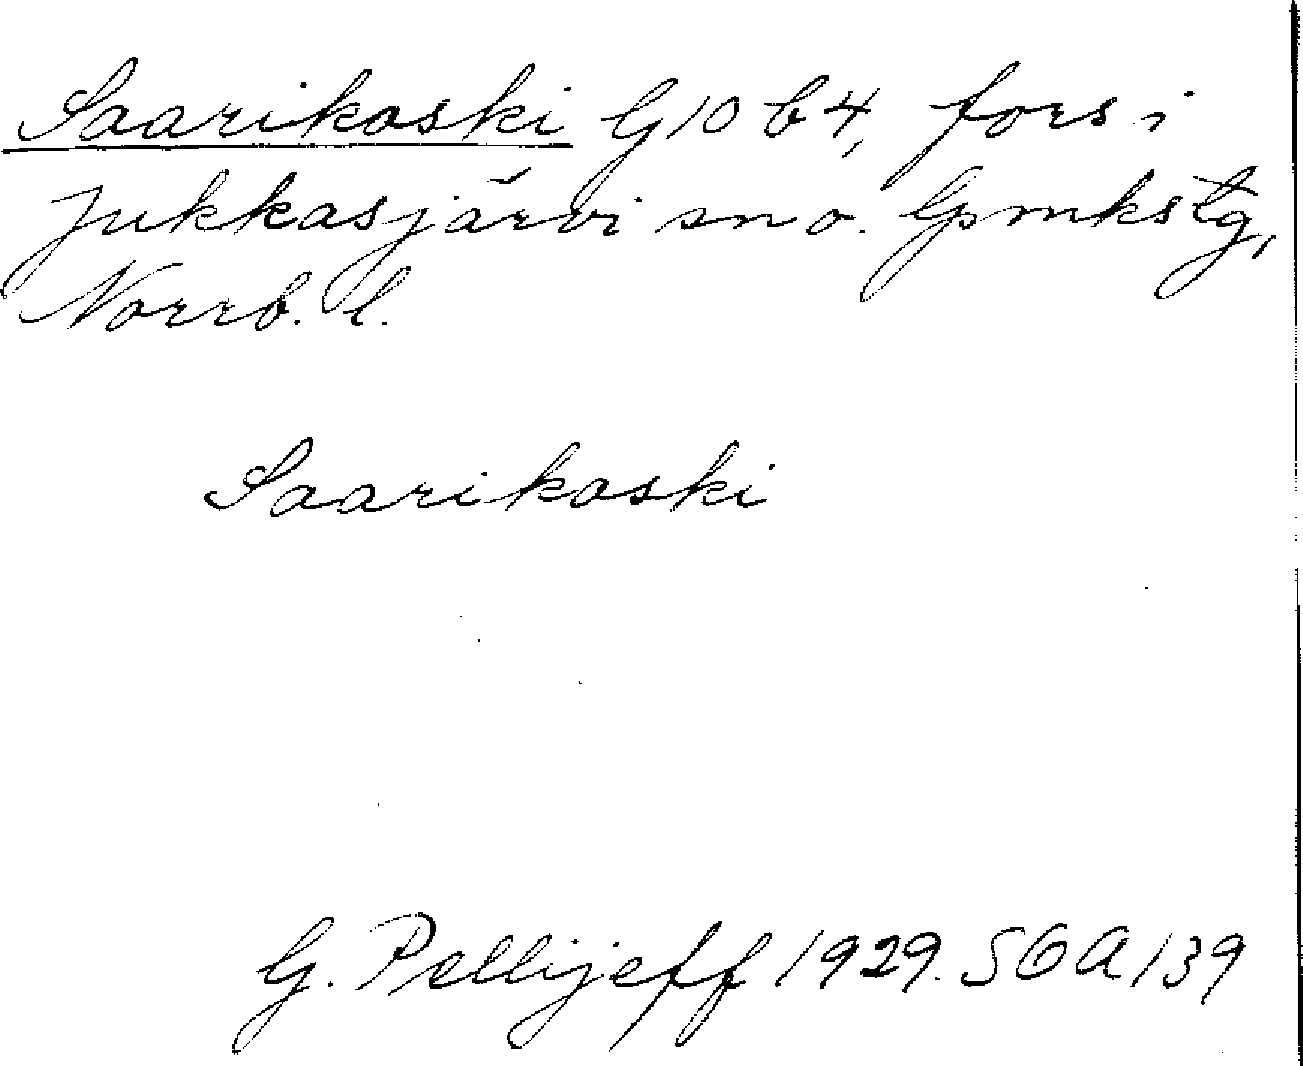 Saarikoski G10 b4, fors i
Jukkasjärvi sn o. Gpmkstg,
Norrb. l.
Saarikoski
G. Pellijeff 1929. SOA 139